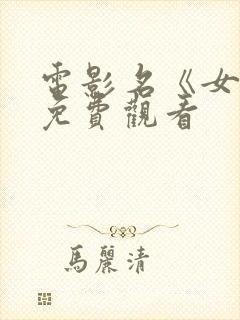 電影名《女
免費觀看
馬麗清